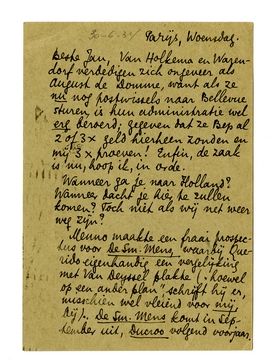 30-6-31/
Parijs, Woensdag.
Beste Jan, Van Holkema en Waren-
dorf verdedigen zich ongeveer als
August de Domme, want als ze
nu nog postwissels naar Bellevue
sturen, is hun administratie wel
erg beroerd; gegeven dat ze Bep al
2 of 3 x geld hierheen zonden en
mij 3 x proeven! Enfin, de zaak
is nu, hoop ik, in orde.
Wanneer ga je naar Holland?
Wanneer dacht je hier te zullen
komen? Toch niet als wij net weer
weg zijn?
Menno maakte een fraai prospec-
tus voor De Sm. Mens, waarbij Que-
rido eigenhandig een vergelijking
met Van Deyssel plakte (- hoewel
op een ander plan" schrijft hij er,
misschien wel vleiend voor mij,
bij). De Sm. Mens komt in Sep-
tember uit, Ducroo volgend voorjaar.